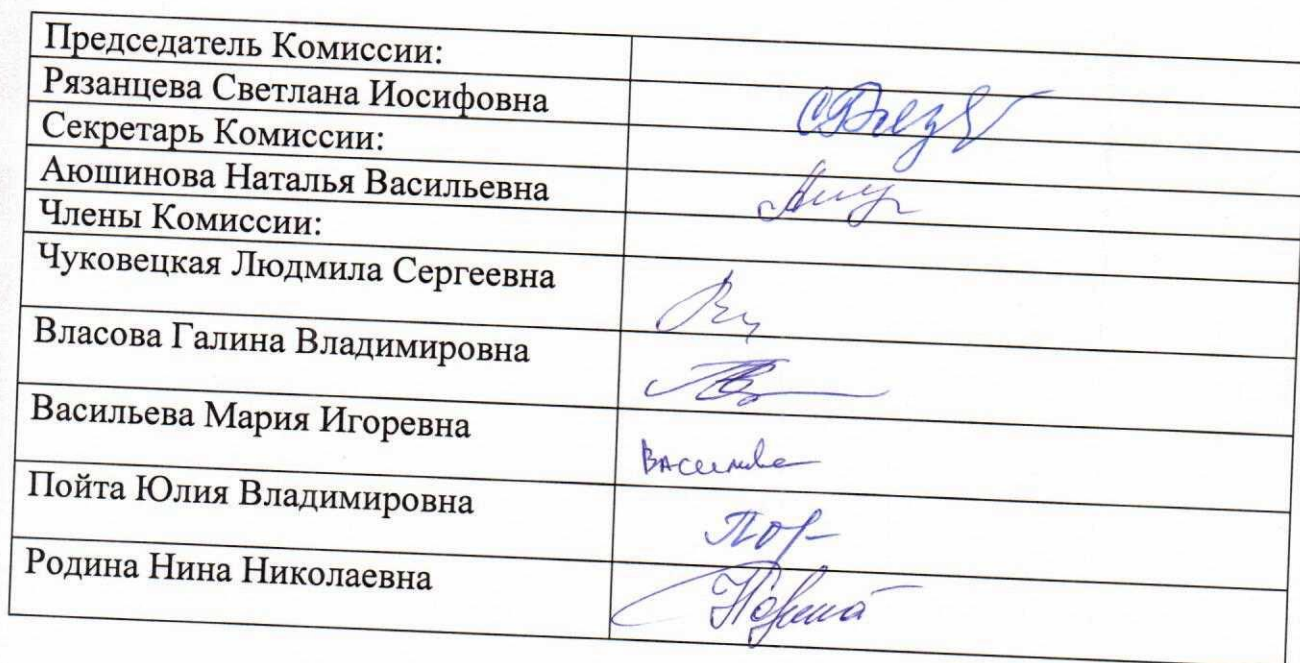 Председатель Комиссии:
Рязанцева Светлана Иосифовна
Секретарь Комиссии:
Аюшинова Наталья Васильевна
Члены Комиссии:
Чуковецкая Людмила Сергеевна
Власова Галина Владимировна
Васильева Мария Игоревна
Пойта Юлия Владимировна
Родина Нина Николаевна